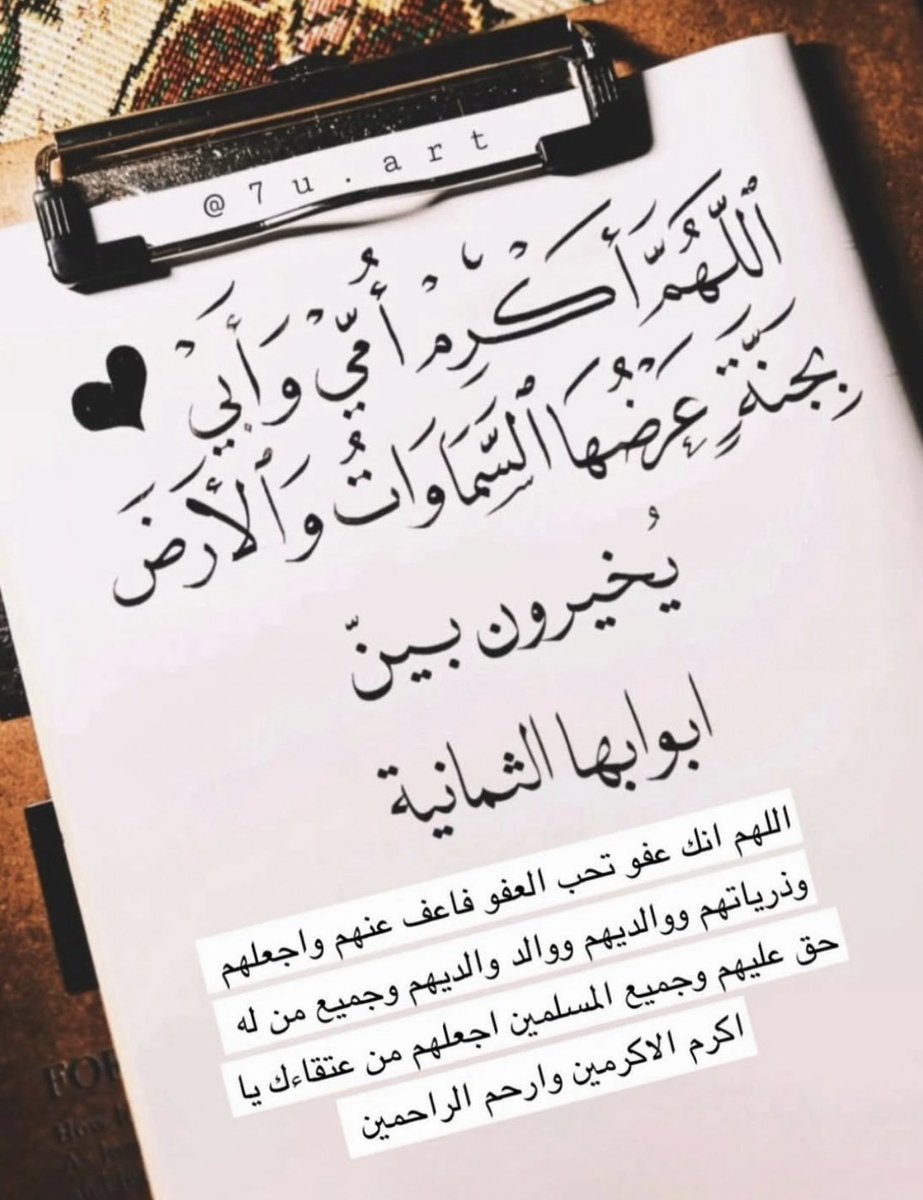 @7u.art
اَللَّهُمَّ أَكْرِمْ أُمِّيْ وَأَبِيْ
بِجَنَّةٍ عَرْضُهَا ٱلسَّمَاوَاتُ وَٱلْأَرْضَ
يُخيرون بينّ
ابوابها الثمانية
اللهم انك عفو تحب العفو فاعف عنهم واجعلهم
وذرياتهم ووالديهم ووالد والديهم وجميع من له
حق عليهم وجميع المسلمين اجعلهم من عتقاءك يا
اكرم الاكرمين وارحم الراحمين